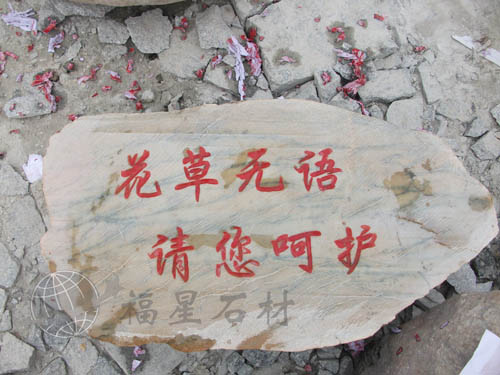 花草无语
请您呵护
福星石材